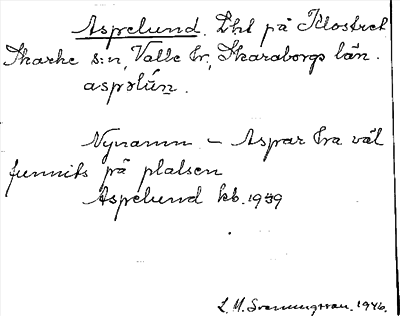 Aspelund. Lht på Klostret
Skarke s:n, Valle hr, Skaraborgs län.
aspəlún.
Nynamn – Aspar tra väl
funnits på platsen
Aspelund kb. 1939
L. M. Svenungsson. 1946.